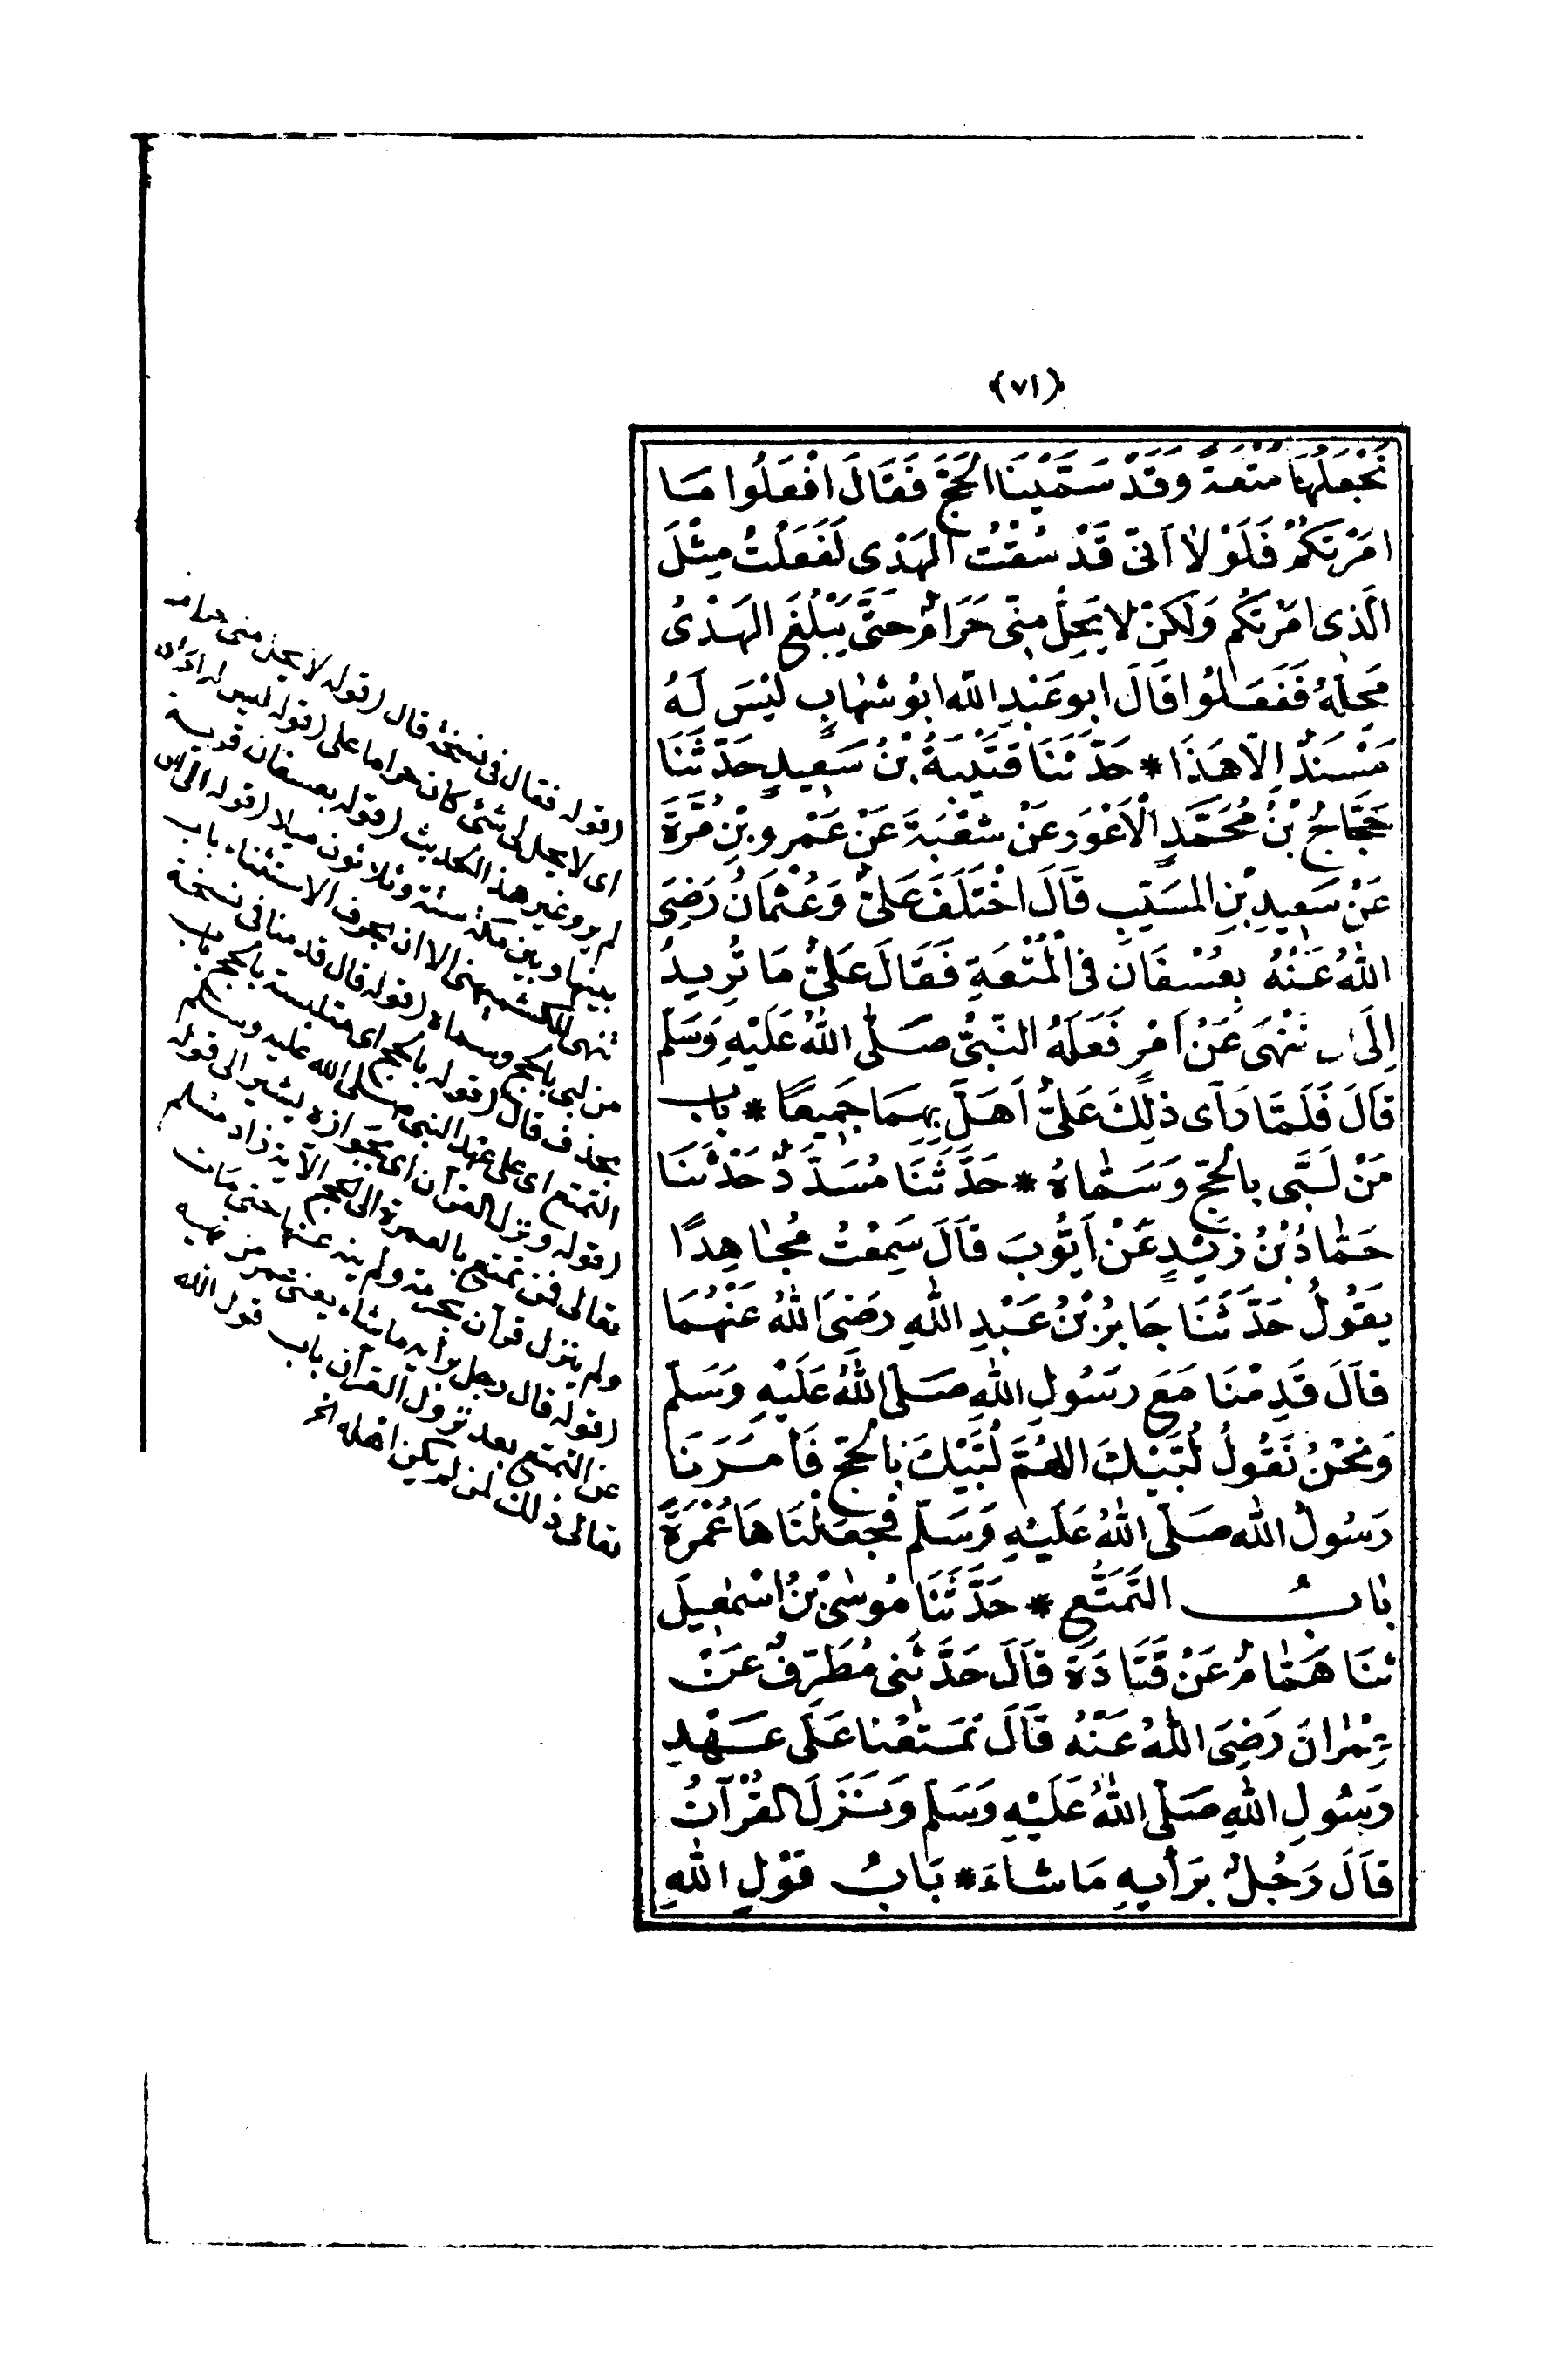 ﴿٧١﴾
نَجْعَلُهَا مُتْعَةً وَقَدْ سَمَّيْنَا الْحَجَّ فَقَالَ افْعَلُوا مَا
امَرْتكُمْ فَلَوْلَا اَنّى قَدْ سُقْتُ الهَدْى لَفَعَلْتُ مِثْلَ
الَّذِى امَرْتكُم وَلَكنْ لا يَحِلُّ مِنّى حَرَامٌ حَتَّى يَبْلُغَ الهَدْىُ
مَحِلَّهُ فَفَعَلُوا قَالَ ابو عَبْدِ اللّٰه ابوُ شهَابٍ لَيْسَ لَهُ
مَسْنَدٌ اِلّا هَذَا * حَدَّثَنَا قُتَيْبَةُ بْنُ سَعِيدٍ حَدَّثَنَا
حَجَّاجُ بْنُ مُحَمَّدٍ الْاَعْوَر عَنْ شعْبَةَ عَنْ عَمْرِو بْنِ مُرَّةَ
عَنْ سَعِيدِ بْنِ المسَيّبِ قَالَ اخْتَلَفَ عَلىٌّ وَعُثْمَانُ رَضِىَ
اللّٰهُ عَنْهُ بِعُسْفَانَ فى الْمُتْعَةِ فَقَالَ عَلىٌّ مَا تُرِيدُ
اِلَى اَن تَنْهَى عَنْ اَمْرٍ فَعَلَهُ النَّبِىُّ صَلَّى اللّٰهُ عَلَيْهِ وَسَلَّم
قَالَ فَلَمَّا رَآى ذلِكَ عَلىٌّ اَهَلَّ بِهِمَا جَمِيعًا * باب
مَنْ لَبَّى بالحَجّ وَسَمَّاهُ * حَدَّثَنَا مُسَدَّدٌ حَدَّثَنَا
حَمَّادُ بْنُ زَيْدٍ عَنْ اَيُّوبَ قَالَ سَمِعْتُ مُجَاهِدًا
يَقُولُ حَدَّثَنَا جَابرُ بْنُ عَبْدِ اللّٰهِ رضَىَ اللّٰهُ عَنْهُمَا
قَالَ قَدِمْنَا مَعَ رسَوُلِ اللّٰهِ صَلَّى اللّٰهُ عَلَيْهِ وَسَلَّم
وَنَحْنُ نَقُولُ لَبَّيْكَ اللّهُمَّ لَبَّيْكَ بالحَجّ فَاَمَرَنَا
رَسُولُ اللّٰه صَلَّى اللّٰهُ عَلَيْهِ وَسَلَّم فَجَعَلْنَاهَا عُمْرَةً
بَابُ التَّمَتُّعِ * حَدَّثَنَا مُوسَى بْنُ اسْمٰعِيلَ
ثنَا هَمَّامٌ عَنْ قَتَادَةَ قَالَ حَدَّثَنِى مُطَرِّفٌ عَنْ
عِمْرَانَ رَضِىَ اللّٰهُ عَنْهُ قَالَ تَمَتَّعْنا عَلَى عَهْدِ
رَسُولِ اللّٰهِ صَلَّى اللّٰهُ عَلَيْهِ وَسَلَّم وَنَزَلَ القُرْآنُ
قَالَ رَجُلٌ برَأيِهِ مَا شاءَ * بَابُ قوْلِ اللّٰهِ
(قوله فقال فى نسخة قال (قوله لا يحل منى حرام
اى لا يحل لى شئ كان حراما على (قوله ليس له
لم يرو غير هذا الحديث (قوله بعسفان قرية
بينها وبين مكة ستة وثلاثون ميلا (قوله الى ان
تنهى للكشميهنى الا ان بحرف الاستثناء باب
من لبى بالحج وسماه (قوله قال قدمنا فى نسخة
بحذف قال (قوله بالحج اى متلبسة بالحج باب
التمتع اى على عهد النبى صلى الله عليه وسلم
(قوله ونزل القرآن اى بجوازه يشير الى قوله
تعالى فمن تمتع بالعمرة الى الحج الآية زاد مسلم
ولم ينزل قرآن يحرمه ولم ينه عنها حتى مات
(قوله قال رجل برأيه ما شاء يعنى عمر من نهيه
عن التمتع بعد نزول القرآن باب قول الله
تعالى ذلك لمن لم يكن اهله الخ